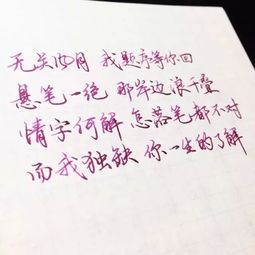 无关风月 我题序等你回
悬笔一绝 那岸边浪千叠
情字何解 怎落笔都不对
而我独缺 你一生的了解